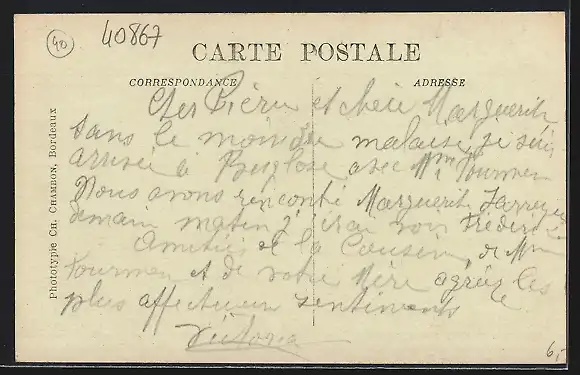 40
40867
CARTE POSTALE
CORRESPONDANCE
ADRESSE
Phototypie CH. CHAMBON, Bordeaux
Cher Pierre et chère Marguerite
Sans le moindre malaise je suis
arrivée a Buglose avec Mme Fourmen
Nous avons rencontré Marguerite
demain matin j'irai voir Frédéric
Amitiés de la Cousine, de Mme
Fourmen et de votre Mère agréez les
plus affectueux sentiments
Victoria
6,-